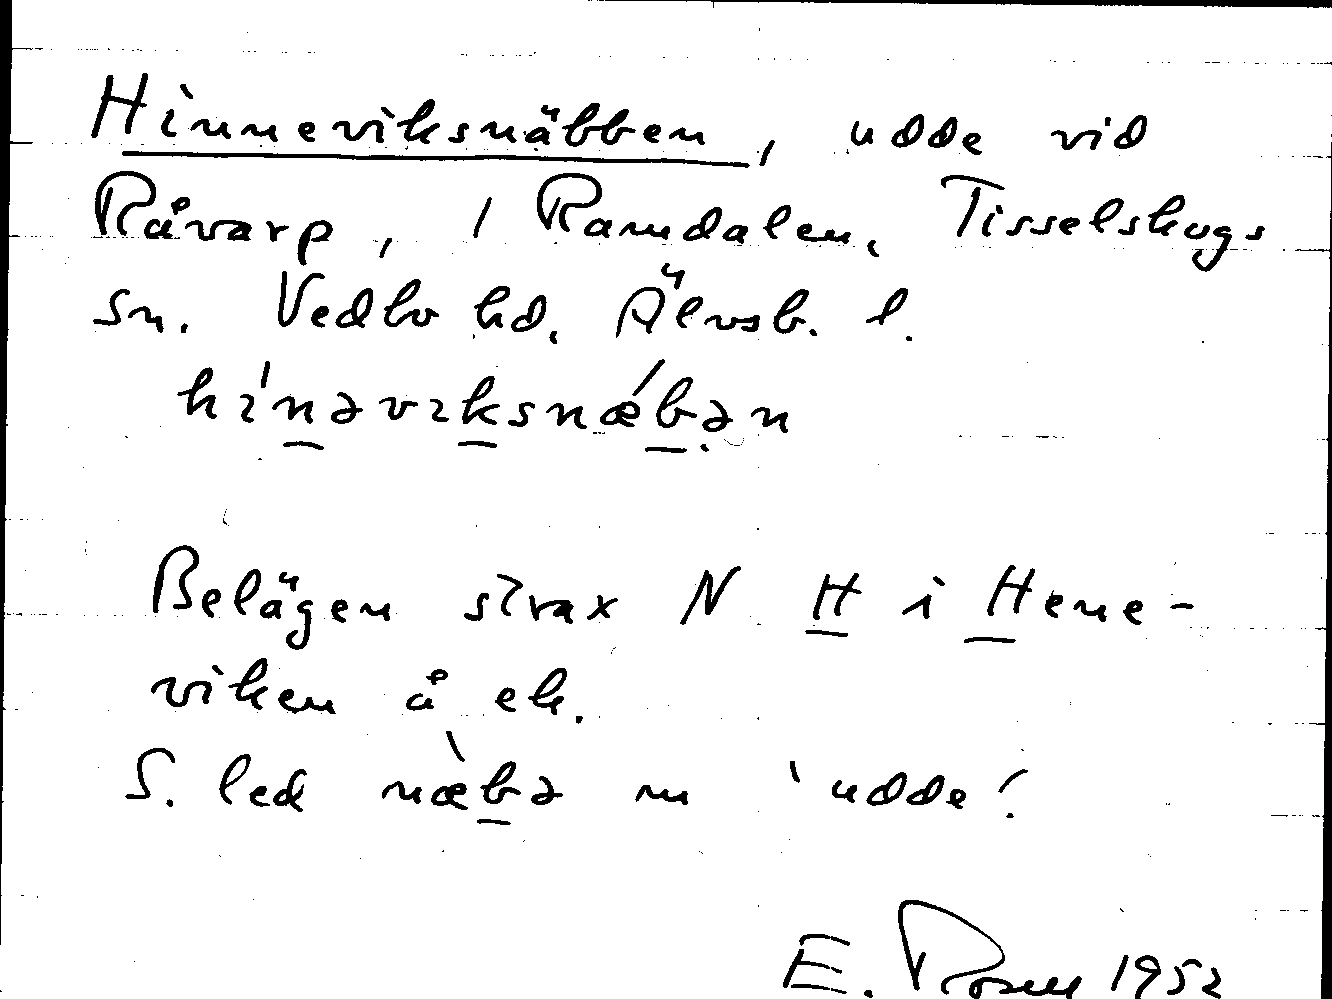 Hinneviksnäbben, udde vid
Råvarp, 1 Ramdalen, Tisselskogs
sn. Vedbo hd. Älvsb. l.
hínəvıksnǽbən
Belägen strax N H i Hene-
viken å ek.
S. led næ̀bə m 'udde'.
E. Rosell 1952